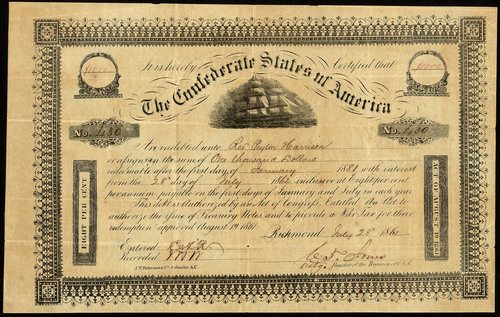 $1000 $1000
It is hereby Certified that
The Confederate States of America
No. 430 No. 430
Are indebted unto Rev. Peyton Harrison
or assigns in the sum of One thousand Dollars
redeemable after the first day of January 1881 with interest
from the 28 day of July 1862 inclusive at Eight per cent
per annum payable on the first days of January and July in each year
This debt is authorized by an Act of Congress Entitled "An Act to
authorize the Issue of Treasury Notes and to provide a War Tax for their
redemption" approved August 19 1861
EIGHT PER CENT
ACT OF AUGUST 19 1861
Richmond July 28 1862
Entered
Recorded
Jones
Register of the Treasury C.S.